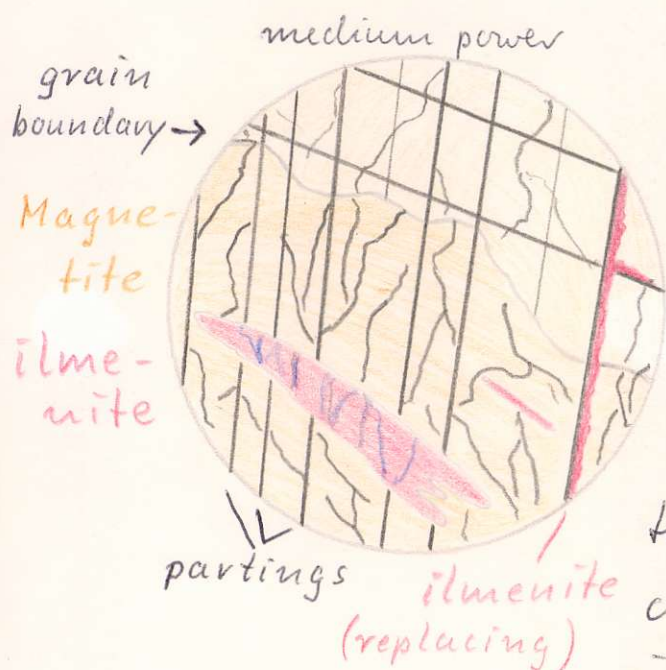 medium power
grain
boundary →
Magne-
tite
ilme-
nite
partings
ilmenite
(replacing)